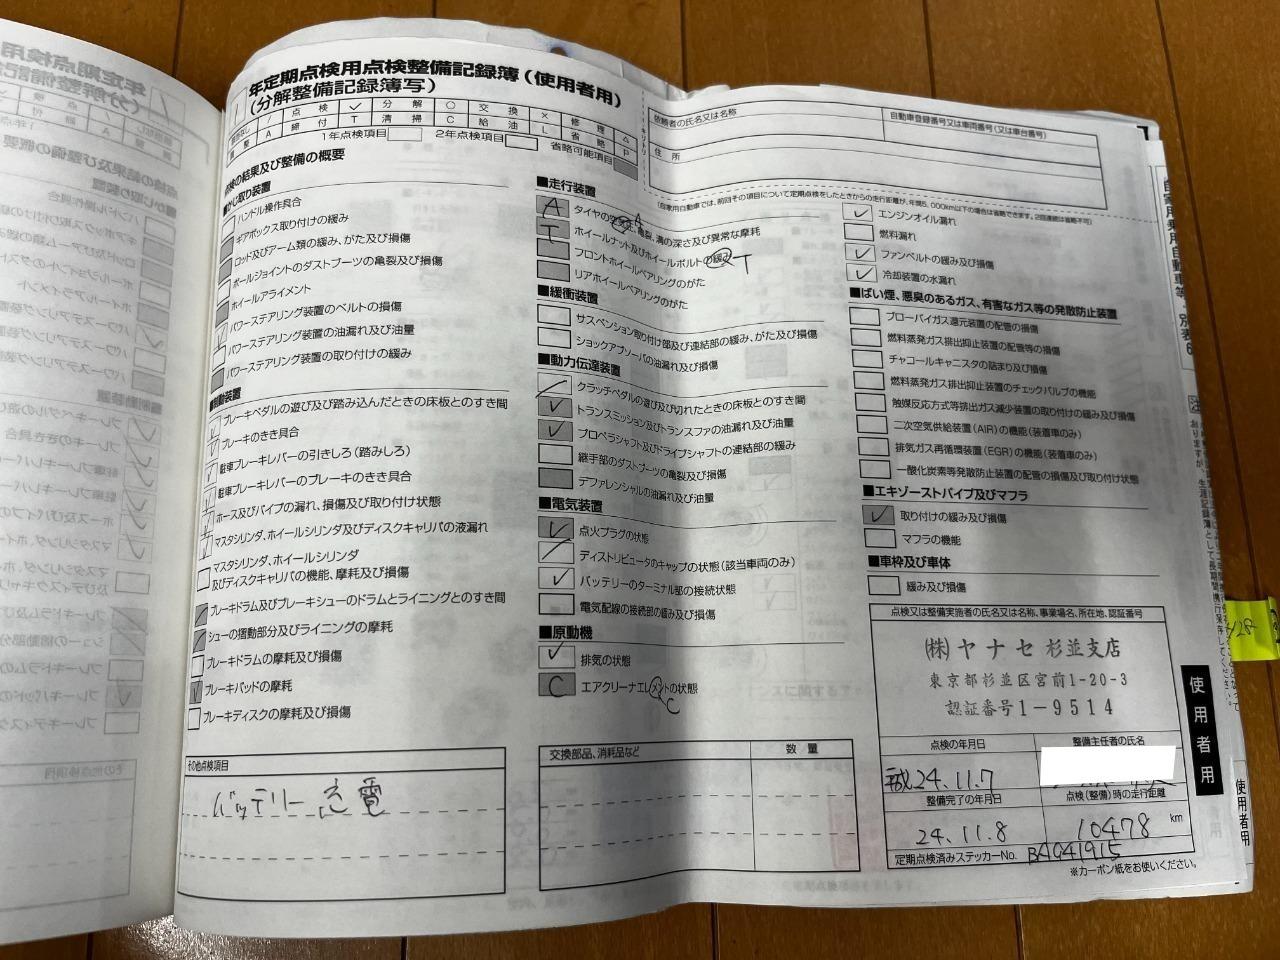 1 年定期点検用点検整備記録簿(使用者用)
(分解整備記録簿写)
点検 ✓ 分解 ○ 交換 × 修理 △
調整 A 締付 T 清掃 C 給油 L 省略 P
1年点検項目 2年点検項目 省略可能項目
依頼者の氏名又は名称
自動車登録番号又は車両番号(又は車台番号)
住所
(自家用自動車では、前回その項目について定期点検をしたときからの走行距離が、年間5,000km以下の場合は省略できます。2回連続は省略不可)
点検の結果及び整備の概要
■かじ取り装置
ハンドル操作具合
ギアボックス取り付けの緩み
ロッド及アーム類の緩み、がた及び損傷
ボールジョイントのダストブーツの亀裂及び損傷
ホイールアライメント
✓ パワーステアリング装置のベルトの損傷
パワーステアリング装置の油漏れ及び油量
パワーステアリング装置の取り付けの緩み
■制動装置
✓ ブレーキペダルの遊び及び踏み込んだときの床板とのすき間
✓ ブレーキのきき具合
✓ 駐車ブレーキレバーの引きしろ(踏みしろ)
✓ 駐車ブレーキレバーのブレーキのきき具合
✓ ホース及びパイプの漏れ、損傷及び取り付け状態
✓ マスタシリンダ、ホイールシリンダ及びディスクキャリパの液漏れ
マスタシリンダ、ホイールシリンダ
及びディスクキャリパの機能、摩耗及び損傷
/ ブレーキドラム及びブレーキシューのドラムとライニングとのすき間
/ シューの摺動部分及びライニングの摩耗
ブレーキドラムの摩耗及び損傷
✓ ブレーキパッドの摩耗
ブレーキディスクの摩耗及び損傷
その他点検項目
バッテリー充電
■走行装置
A タイヤの空気圧、亀裂、溝の深さ及び異常な摩耗 A
T ホイールナット及びホイールボルトの緩み T
フロントホイールベアリングのがた
リアホイールベアリングのがた
■緩衝装置
サスペンション取り付け部及び連結部の緩み、がた及び損傷
ショックアブソーバの油漏れ及び損傷
■動力伝達装置
/ クラッチペダルの遊び及び切れたときの床板とのすき間
✓ トランスミッション及びトランスファの油漏れ及び油量
✓ プロペラシャフト及びドライブシャフトの連結部の緩み
継手部のダストブーツの亀裂及び損傷
デファレンシャルの油漏れ及び油量
■電気装置
✓ 点火プラグの状態
/ ディストリビュータのキャップの状態(該当車両のみ)
✓ バッテリーのターミナル部の接続状態
電気配線の接続部の緩み及び損傷
■原動機
✓ 排気の状態
C エアクリーナエレメントの状態
C
交換部品、消耗品など 数量
✓ エンジンオイル漏れ
燃料漏れ
✓ ファンベルトの緩み及び損傷
✓ 冷却装置の水漏れ
■ばい煙、悪臭のあるガス、有害なガス等の発散防止装置
ブローバイガス還元装置の配管の損傷
燃料蒸発ガス排出抑止装置の配管等の損傷
チャコールキャニスタの詰まり及び損傷
燃料蒸発ガス排出抑止装置のチェックバルブの機能
触媒反応方式等排出ガス減少装置の取り付けの緩み及び損傷
二次空気供給装置(AIR)の機能(装着車のみ)
排気ガス再循環装置(EGR)の機能(装着車のみ)
一酸化炭素等発散防止装置の配管の損傷及び取り付け状態
■エキゾーストパイプ及びマフラ
✓ 取り付けの緩み及び損傷
マフラの機能
■車枠及び車体
緩み及び損傷
点検又は整備実施者の氏名又は名称、事業場名、所在地、認証番号
(株)ヤナセ 杉並支店
東京都杉並区宮前1-20-3
認証番号1-9514
点検の年月日 整備主任者の氏名
平成24.11.7
整備完了の年月日 点検(整備)時の走行距離
24.11.8 10478 km
定期点検済みステッカーNo. BA041915
※カーボン紙をお使いください。
使用者用
自家用乗用自動車等・別表6
使用者用